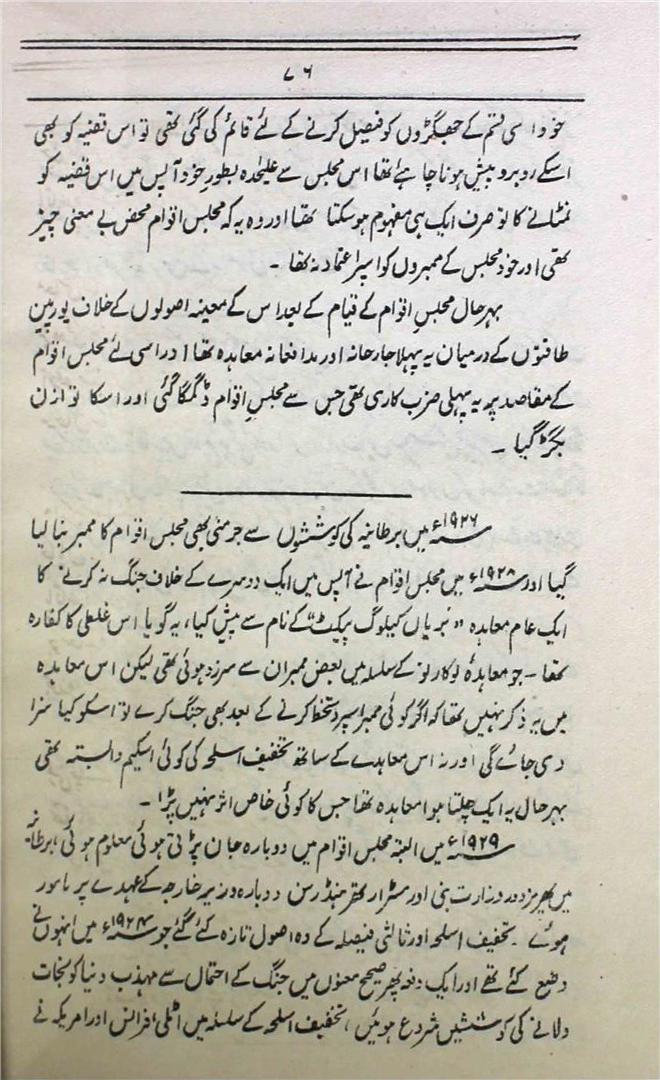 ۷۶
خود اسی قسم کے جھگڑوں کو فیصل کرنے کے لئے قائم کی گئی تھی تو اس قضیہ کو بھی
اسکے روبرو پیش ہونا چاہئے تھا اس مجلس سے علیٰحدہ بطور خود آپس میں اس قضیہ کو
نمٹانے کا تو صرف ایک ہی مفہوم ہو سکتا تھا اور وہ یہ کہ مجلس اقوام محض بے معنی چیز
تھی اور خود مجلس کے ممبروں کو اسپر اعتماد نہ تھا ۔
بہرحال مجلسِ اقوام کے قیام کے بعد اس کے معینہ اصولوں کے خلاف یورپین
طاقتوں کے درمیان یہ پہلا جارحانہ اور مدافعانہ معاہدہ تھا اور اسی لئے مجلس اقوام
کے مقاصد پر یہ پہلی ضرب کاری تھی جس سے مجلسِ اقوام ڈگمگا گئی اور اسکا توازن
بگڑ گیا ۔
سنہ ۱۹۲۶ء میں برطانیہ کی کوششوں سے جرمنی بھی مجلس اقوام کا ممبر بنا لیا
گیا اور سنہ ۱۹۲۸ء میں مجلس اقوام نے آپس میں ایک دوسرے کے خلاف جنگ نہ کرنے کا
ایک عام معاہدہ "بریاں کیلوگ پیکٹ" کے نام سے پیش کیا، یہ گویا اس غلطی کا کفارہ
تھا ۔ جو معاہدۂ لوکارنو کے سلسلہ میں بعض ممبران سے سرزد ہوئی تھی لیکن اس معاہدہ
میں یہ ذکر نہیں تھا کہ اگر کوئی ممبر اسپر دستخط کرنے کے بعد بھی جنگ کرے تو اسکو کیا سزا
دی جائے گی اور نہ اس معاہدے کے ساتھ تخفیف اسلحہ کی کوئی اسکیم وابستہ تھی
بہرحال یہ ایک چلتا ہوا معاہدہ تھا جس کا کوئی خاص اثر نہیں پڑا ۔
سنہ ۱۹۲۹ء میں البتہ مجلس اقوام میں دوبارہ جان پڑتی ہوئی معلوم ہوئی، برطانیہ
میں پھر مزدور وزارت بنی اور مسٹر ارتھر ہنڈرسن دوبارہ وزیر خارجہ کے عہدے پر مامور
ہوئے ۔ تخفیف اسلحہ اور ثالثی فیصلہ کے وہ اصول تازہ کئے گئے جو سنہ ۱۹۲۴ء میں انہوں نے
وضع کئے تھے اور ایک دفعہ پھر صحیح معنوں میں جنگ کے احتمال سے مہذب دنیا کو نجات
دلانے کی کوششیں شروع ہوئیں، تخفیف اسلحہ کے سلسلہ میں اٹلی، فرانس اور امریکہ نے